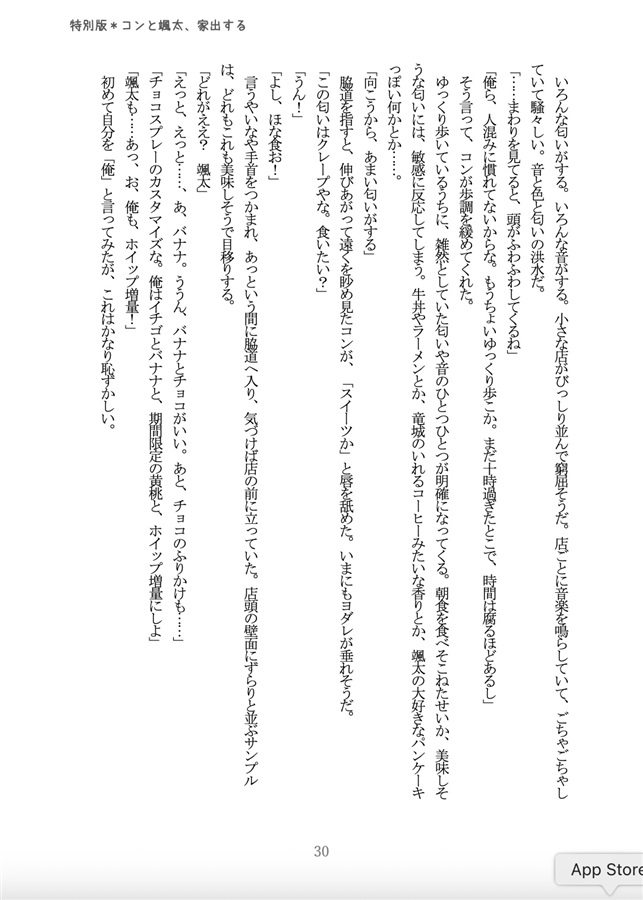 特別版＊コンと颯太、家出する
いろんな匂いがする。いろんな音がする。小さな店がびっしり並んで窮屈そうだ。店ごとに音楽を鳴らしていて、ごちゃごちゃし
ていて騒々しい。音と色と匂いの洪水だ。
「……まわりを見てると、頭がふわふわしてくるね」
「俺ら、人混みに慣れてないからな。もうちょいゆっくり歩こか。まだ十時過ぎたとこで、時間は腐るほどあるし」
そう言って、コンが歩調を緩めてくれた。
ゆっくり歩いているうちに、雑然としていた匂いや音のひとつひとつが明確になってくる。朝食を食べそこねたせいか、美味しそ
うな匂いには、敏感に反応してしまう。牛丼やラーメンとか、竜城のいれるコーヒーみたいな香りとか、颯太の大好きなパンケーキ
っぽい何かとか……。
「向こうから、あまい匂いがする」
脇道を指すと、伸びあがって遠くを眇め見たコンが、「スイーツか」と唇を舐めた。いまにもヨダレが垂れそうだ。
「この匂いはクレープやな。食いたい？」
「うん！」
「よし、ほな食お！」
言うやいなや手首をつかまれ、あっという間に脇道へ入り、気づけば店の前に立っていた。店頭の壁面にずらりと並ぶサンプル
は、どれもこれも美味しそうで目移りする。
「どれがええ？　颯太」
「えっと、えっと……、あ、バナナ。ううん、バナナとチョコがいい。あと、チョコのふりかけも……」
「チョコスプレーのカスタマイズな。俺はイチゴとバナナと、期間限定の黄桃と、ホイップ増量にしよ」
「颯太も……あっ、お、俺も、ホイップ増量！」
初めて自分を「俺」と言ってみたが、これはかなり恥ずかしい。
30
App Store